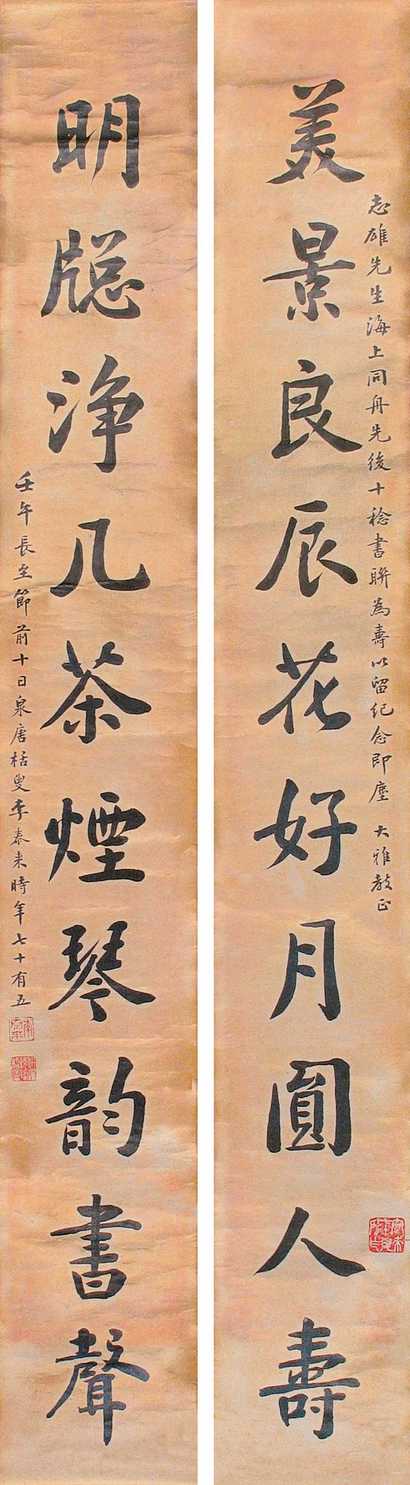 志雄先生海上同舟先後十稔書聯為壽以留紀念即塵 大雅教正
美景良辰花好月圓人壽
明牎淨几茶煙琴韵書聲
壬午長至節前十日泉唐栝叟李泰來時年七十有五